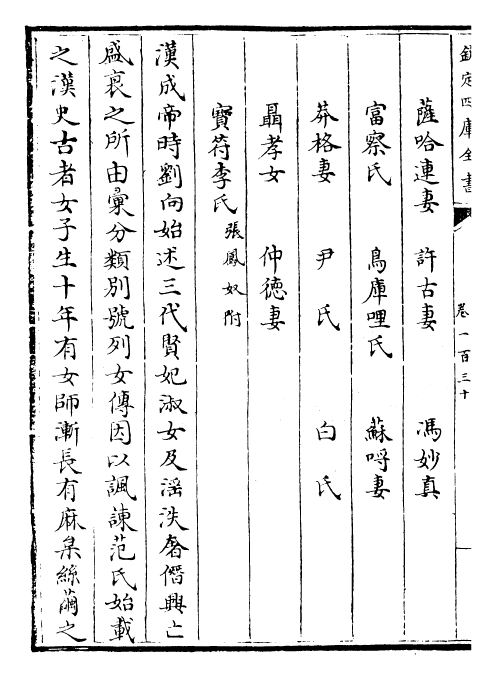 欽定四庫全書
卷一百三十
薩哈連妻 許古妻 馮妙真
富察氏 烏庫哩氏 蘇哷妻
莽格妻 尹氏 白氏
聶孝女 仲徳妻
寳符李氏 張鳳奴附
漢成帝時劉向始述三代賢妃淑女及淫泆奢僭興亡
盛衰之所由彚分類別號列女傳因以諷諫范氏始載
之漢史古者女子生十年有女師漸長有麻枲絲繭之